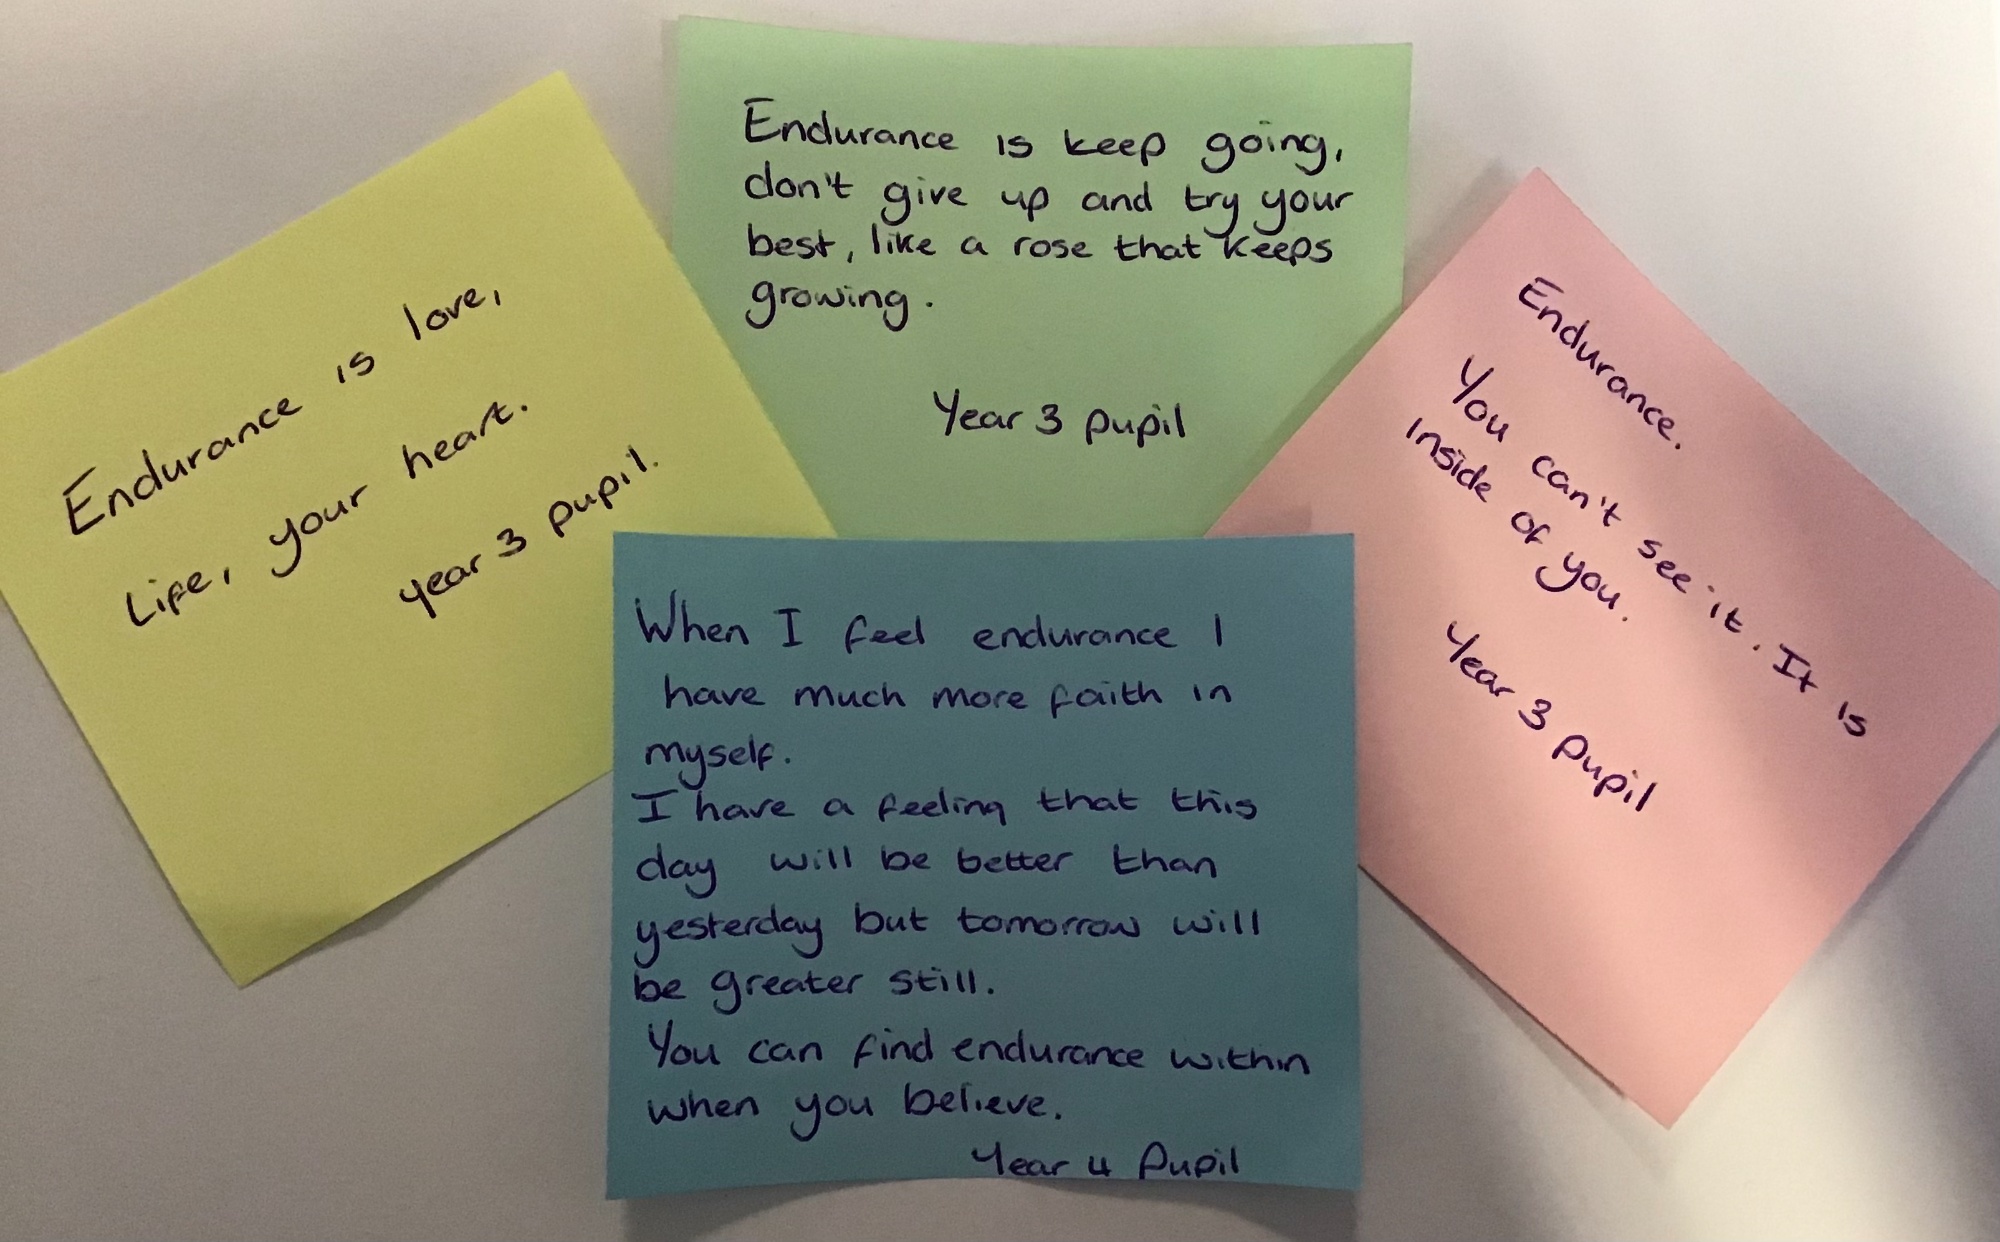 Endurance is love,
Life, your heart.
year 3 pupil.
Endurance is keep going,
don't give up and try your
best, like a rose that keeps
growing.
Year 3 pupil
Endurance.
You can't see it. It is
inside of you.
Year 3 pupil
When I feel endurance I
have much more faith in
myself.
I have a feeling that this
day will be better than
yesterday but tomorrow will
be greater still.
You can find endurance within
when you believe.
Year 4 Pupil